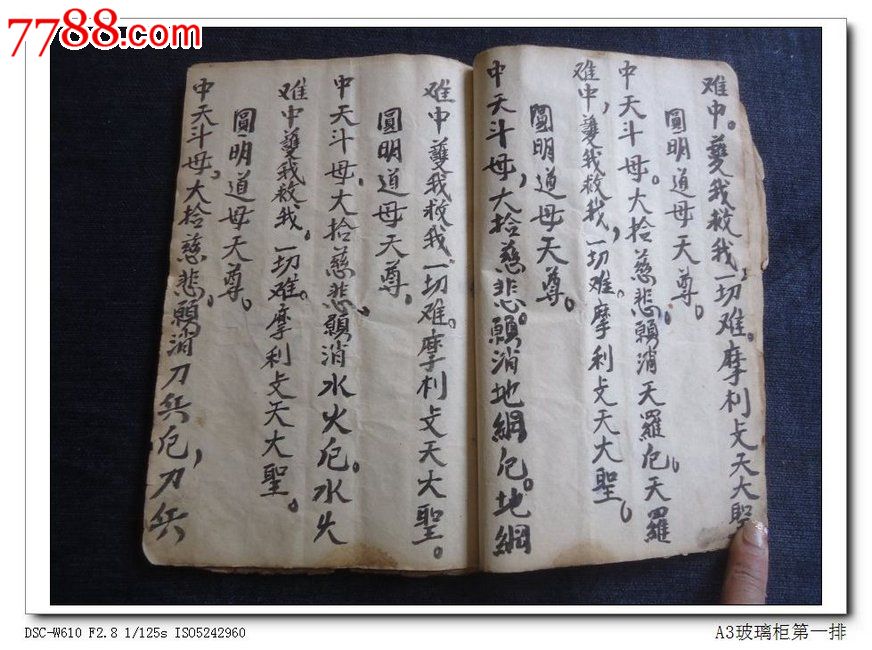 7788.com
中国收藏热线
难中。㸌我救我,一切难。摩利攴天大聖
圓明道母天尊。
中天斗母。大拾慈悲。願消天羅厄。天羅
难中,㸌我救我,一切难。摩利攴天大聖。
圓明道母天尊。
中天斗母,大拾慈悲。願消地網厄。地網
难中㸌我救我一切难。摩利攴天大聖。
圓明道母天尊,
中天斗母,大拾慈悲,願消水火厄。水火
难中㸌我救我。一切难。摩利攴天大聖。
圓明道母天尊。
中天斗母,大拾慈悲。願消刀兵厄,刀兵
DSC-W610 F2.8 1/125s ISO5242960
A3玻璃柜第一排